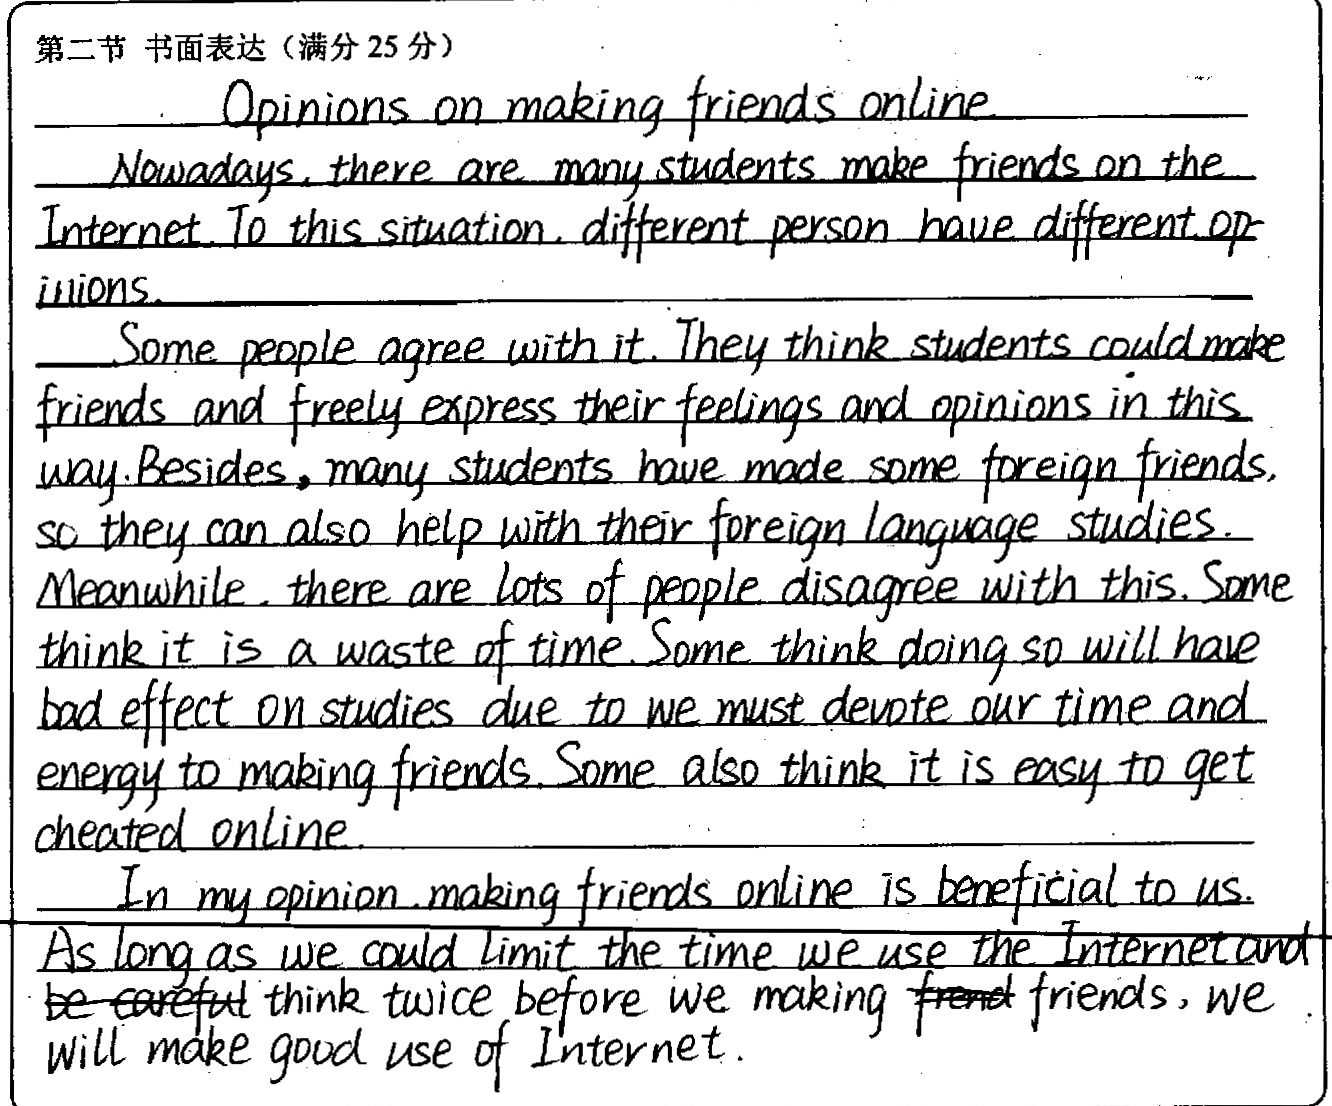 第二节 书面表达（满分 25 分）
Opinions on making friends online
Nowadays, there are many students make friends on the
Internet. To this situation, different person have different op-
inions.
Some people agree with it. They think students could make
friends and freely express their feelings and opinions in this
way. Besides, many students have made some foreign friends,
so they can also help with their foreign language studies.
Meanwhile, there are lots of people disagree with this. Some
think it is a waste of time. Some think doing so will have
bad effect on studies due to we must devote our time and
energy to making friends. Some also think it is easy to get
cheated online.
In my opinion, making friends online is beneficial to us.
As long as we could limit the time we use the Internet and
be careful think twice before we making frend friends, we
will make good use of Internet.